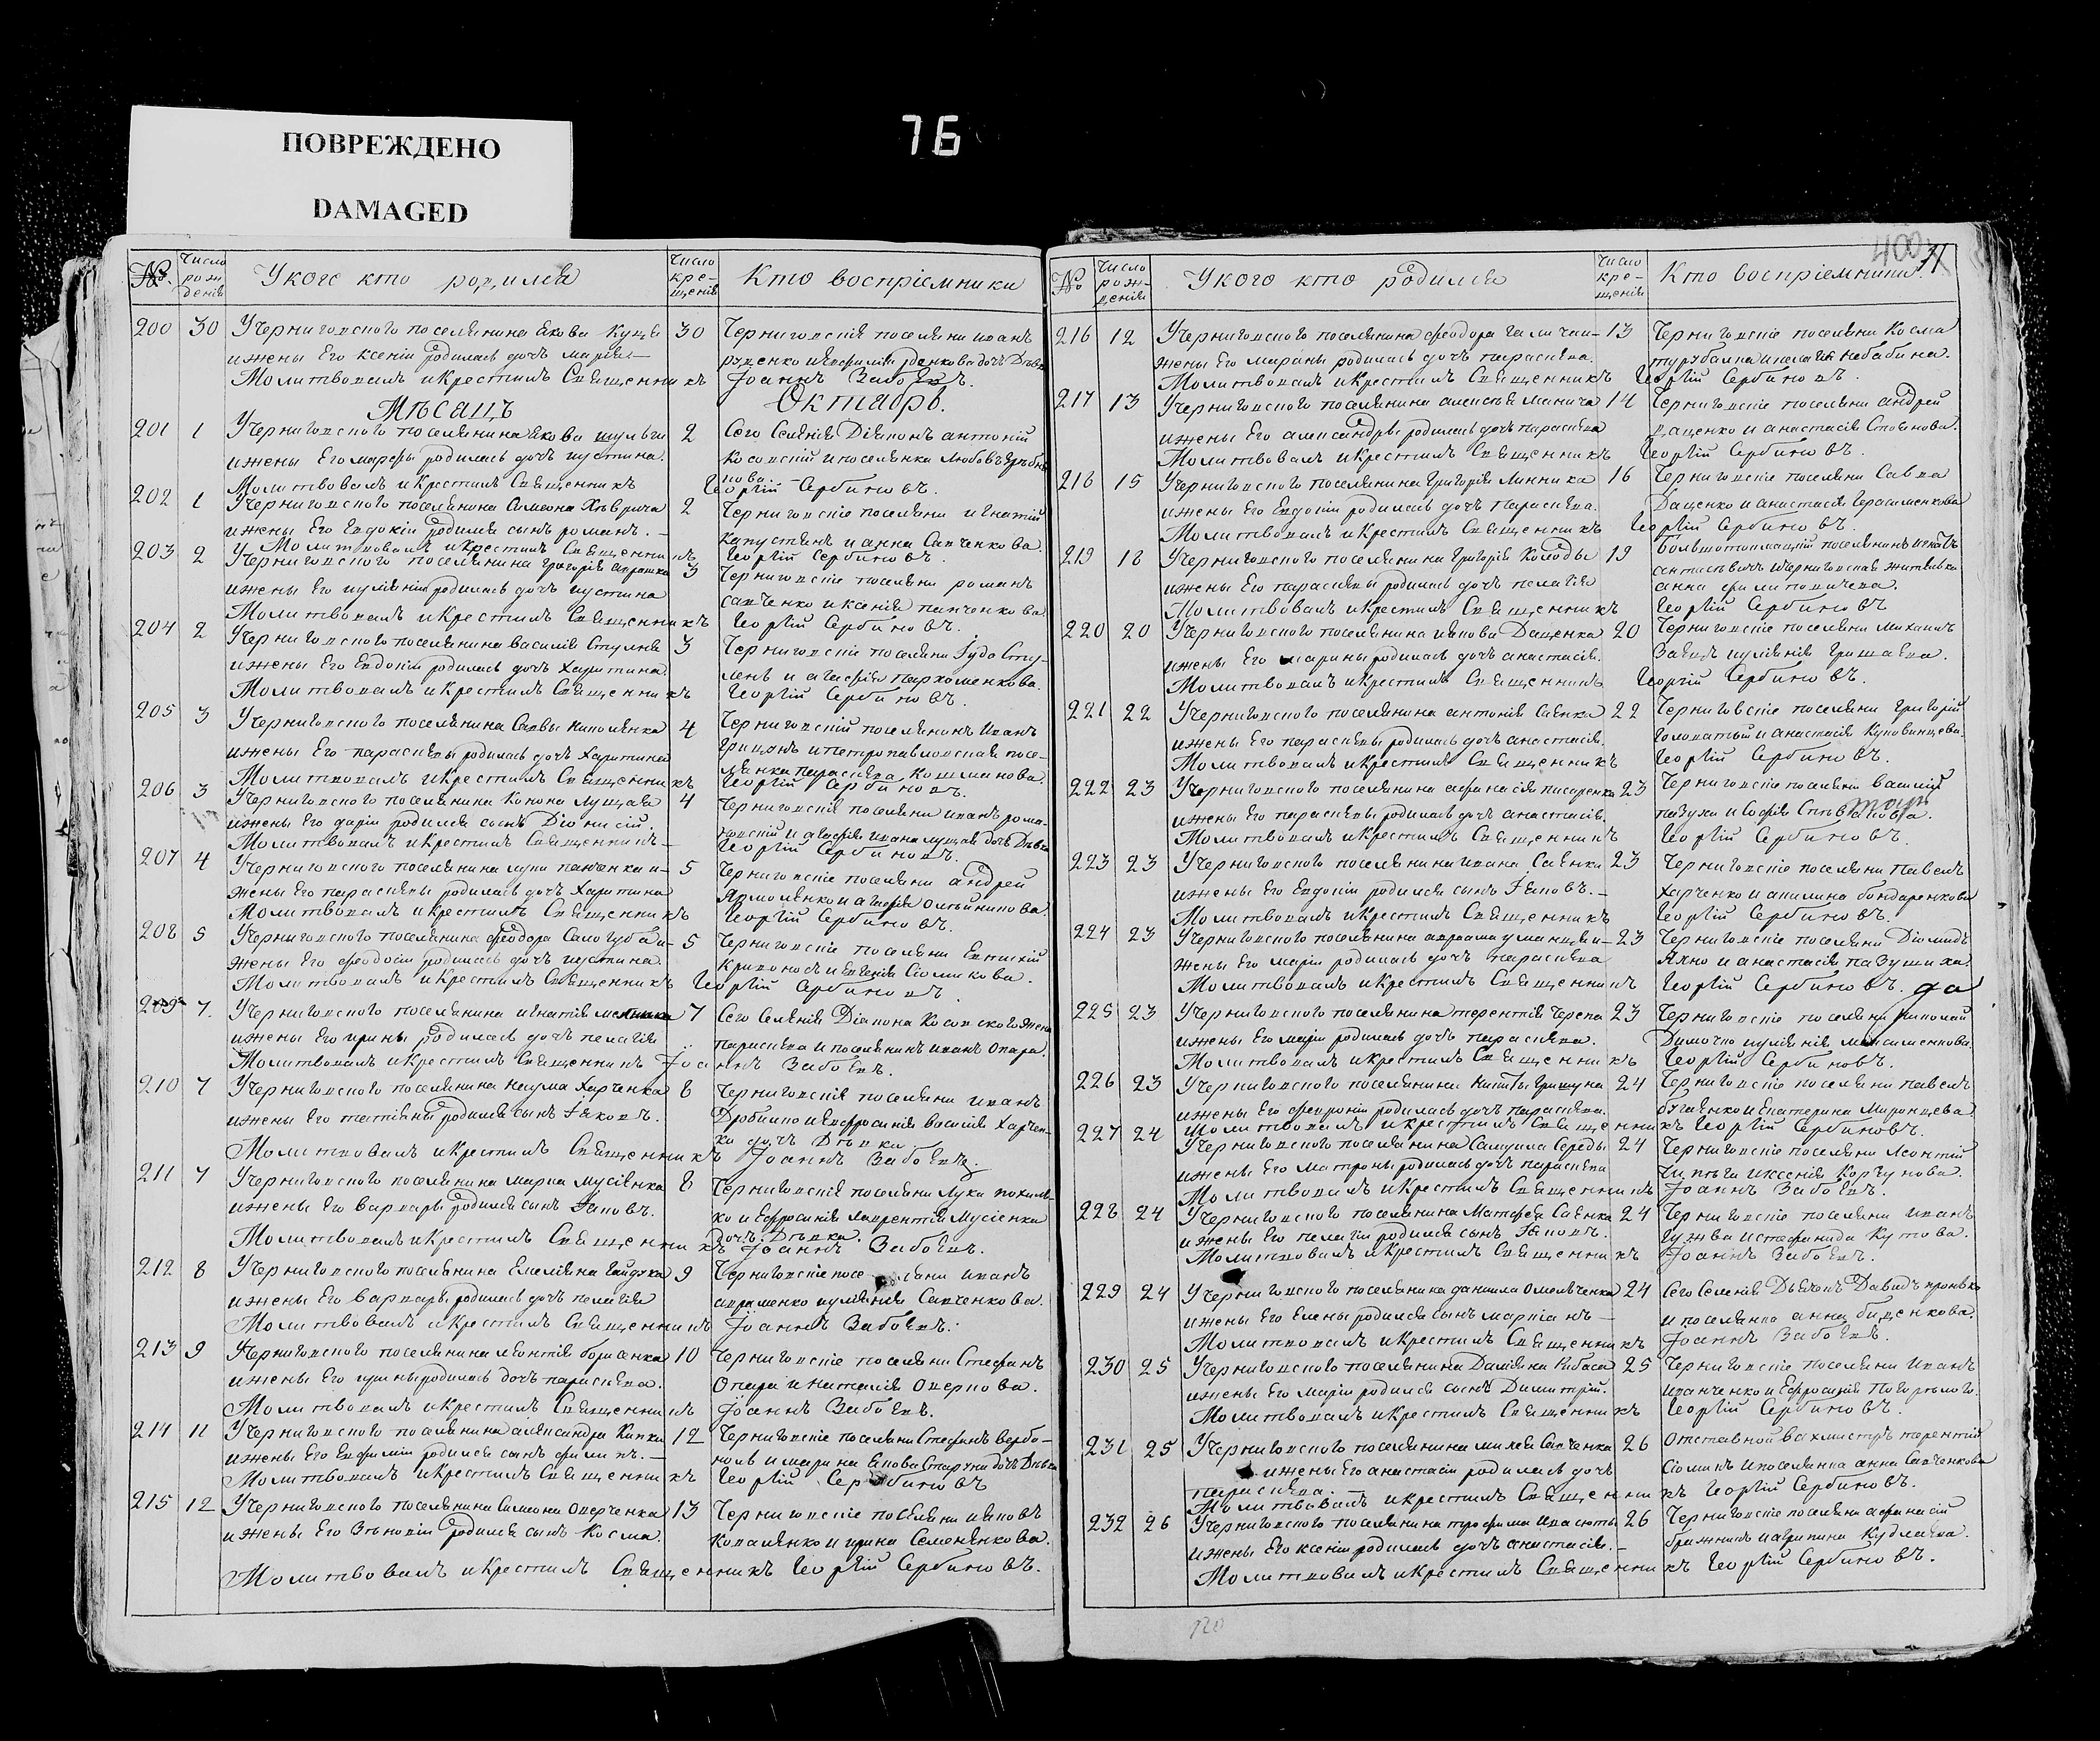 ПОВРЕЖДЕНО
DAMAGED
76
400
71
№ Число рожденія У кого кто родился Число крещенія Кто воспріемники
200 30 У Черниговского поселянина Якова Куцы 30 Черниговскія поселяни иванъ
и жены Его ксеніи родилась дочъ марія
Молитвовалъ и Крестилъ Священникъ Іоаннъ Забоевъ.
Мѣсяцъ Октябрь.
201 1 У Черниговского поселянина Якова шульги 2 Сего Селенія Діяконъ антоній
и жены Его марфы родилась дочъ иустина. Косовскій и поселянка любовъ
Молитвовалъ и Крестилъ Священникъ Георгій Сербиновъ.
202 1 У Черниговского поселянина Симеона 2 Черниговскіе поселяни игнатій
и жены Его Евдокіи родился сынъ романъ. капустянъ и анна Савченкова.
Молитвовалъ и Крестилъ Священникъ Георгій Сербиновъ.
203 2 У Черниговского поселянина григорія 3 Черниговскіе поселяни романъ
и жены Его иуліяніи родилась дочъ иустина савченко и ксенія панченкова
Молитвовалъ и Крестилъ Священникъ Георгій Сербиновъ.
204 2 У Черниговского поселянина василія 3 Черниговскіе поселяни
и жены Его Евдокіи родилась дочъ Харитина и агафія пархоменкова.
Молитвовалъ и Крестилъ Священникъ Георгій Сербиновъ.
205 3 У Черниговского поселянина Саввы 4 Черниговскій поселянинъ иванъ
и жены Его параскевы родилась дочъ Харитина грицанъ и петропавловская посе-
Молитвовалъ и Крестилъ Священникъ лянка параскева Кошманова.
Георгій Сербиновъ.
206 3 У Черниговского поселянина Конона лущая 4 Черниговскія поселяни иванъ рома-
и жены Его даріи родился сынъ Діонисій. новскій и агафія ивана лущая дочъ Дѣвка
Молитвовалъ и Крестилъ Священникъ Георгій Сербиновъ.
207 4 У Черниговского поселянина луки панченка и- 5 Черниговскіе поселяни андрей
жены Его параскевы родилась дочъ Харитина Ярмоленко и агафія
Молитвовалъ и Крестилъ Священникъ Георгій Сербиновъ.
208 5 У Черниговского поселянина феодора Салогуба и- 5 Черниговскіе поселяни Евтихій
жены Его феодосіи родилась дочъ иустина. Кривоносъ и Евгенія Сіомкова.
Молитвовалъ и Крестилъ Священникъ Георгій Сербиновъ
209 7 У Черниговского поселянина игнатія 7 Сего Селенія Діакона Косовского жена
и жены Его ирины родилась дочъ пелагія параскева и поселянинъ иванъ Опара.
Молитвовалъ и Крестилъ Священникъ Іоаннъ Забоевъ.
210 7 У Черниговского поселянина наума Харченка 8 Черниговскія поселяни иванъ
и жены Его татіяны родился сынъ Іяковъ. и Евфросинія василія Харчен-
ка дочъ Дѣвка.
Молитвовалъ и Крестилъ Священникъ Іоаннъ Забоевъ.
211 7 У Черниговского поселянина марка мусіенка 8 Черниговскія поселяни лука
и жены Его варвары родился сынъ Іяковъ. и Ефросинія лаврентія Мусіенка
дочъ Дѣвка.
Молитвовалъ и Крестилъ Священникъ Іоаннъ Забоевъ.
212 8 У Черниговского поселянина Емеліяна гайдука 9 Черниговскіе поселяни иванъ
и жены Его варвары родилась дочъ пелагія авраменко иуліянія Савченкова.
Молитвовалъ и Крестилъ Священникъ Іоаннъ Забоевъ.
213 9 У Черниговского поселянина леонтія борисенка 10 Черниговскіе поселяни Стефанъ
и жены Его ирины родилась дочъ параскева. Опара и наталія
Молитвовалъ и Крестилъ Священникъ Іоаннъ Забоевъ.
214 11 У Черниговского поселянина александра 12 Черниговскіе поселяни Стефанъ
и жены Его Евфиміи родился сынъ и марина Якова дочъ Дѣвка
Молитвовалъ и Крестилъ Священникъ Георгій Сербиновъ
215 12 У Черниговского поселянина Симеона 13 Черниговскіе поселяни иаковъ
и жены Его родился сынъ Косма. Коваленко и ирина Семененкова.
Молитвовалъ и Крестилъ Священникъ Георгій Сербиновъ.
№ Число рожденія У кого кто родился Число крещенія Кто воспріемники
216 12 У Черниговского поселянина феодора 13 Черниговскіе поселяни Косма
и жены Его марины родилась дочъ параскева.
Молитвовалъ и Крестилъ Священникъ Георгій Сербиновъ.
217 13 У Черниговского поселянина алексея 14 Черниговскіе поселяни андрей
и жены Его александры родилась дочъ параскева Даценко и анастасія
Молитвовалъ и Крестилъ Священникъ Георгій Сербиновъ.
218 15 У Черниговского поселянина григорія линника 16 Черниговскіе поселяни Савва
и жены Его Евдокіи родилась дочъ параскева. Даценко и анастасія Герасименкова
Молитвовалъ и Крестилъ Священникъ Георгій Сербиновъ.
219 18 У Черниговского поселянина григорія Колоды 19 Большотокмацкій поселянинъ
и жены Его параскевы родилась дочъ пелагія и Черниговская жителька
анна филиповичева.
Молитвовалъ и Крестилъ Священникъ Георгій Сербиновъ
220 20 У Черниговского поселянина иакова Даценка 20 Черниговскіе поселяни михаилъ
и жены Его марины родилась дочъ анастасія. иуліянія гришаева.
Молитвовалъ и Крестилъ Священникъ Георгій Сербиновъ.
221 22 У Черниговского поселянина антонія Саенка 22 Черниговскіе поселяни григорій
и жены Его параскевы родилась дочъ анастасія. головатый и анастасія
Молитвовалъ и Крестилъ Священникъ Георгій Сербиновъ.
222 23 У Черниговского поселянина афанасія писаренка 23 Черниговскіе поселяни василій
и жены Его параскевы родилась дочъ анастасія. пазуха и Софія
Молитвовалъ и Крестилъ Священникъ Георгій Сербиновъ.
223 23 У Черниговского поселянина ивана Саенка 23 Черниговскіе поселяни павелъ
и жены Его Евдокіи родился сынъ Іаковъ. Харченко и акилина бондаренкова
Молитвовалъ и Крестилъ Священникъ Георгій Сербиновъ.
224 23 У Черниговского поселянина авраама уманцея и- 23 Черниговскіе поселяни Діомидъ
жены Его маріи родилась дочъ параскева и анастасія пазушиха.
Молитвовалъ и Крестилъ Священникъ Георгій Сербиновъ.
225 23 У Черниговского поселянина терентія Черепа 23 Черниговскіе поселяни николай
и жены Его маріи родилась дочъ параскева. Димочко иуліянія максименкова.
Молитвовалъ и Крестилъ Священникъ Георгій Сербиновъ.
226 23 У Черниговского поселянина никиты грицуна 24 Черниговскіе поселяни павелъ
и жены Его февроніи родилась дочъ параскева. бугаенко и Екатерина Миронцева
Молитвовалъ и Крестилъ Священникъ Георгій Сербиновъ.
227 24 У Черниговского поселянина Самуила Середы 24 Черниговскіе поселяни леонтій
и жены Его матроны родилась дочъ параскева и ксенія Коржунова.
Молитвовалъ и Крестилъ Священникъ Іоаннъ Забоевъ.
228 24 У Черниговского поселянина Матфея Саенка 24 Черниговскіе поселяни иванъ
и жены Его пелагіи родился сынъ Іаковъ. гужва и стефанида Кутова.
Молитвовалъ и Крестилъ Священникъ Іоаннъ Забоевъ.
229 24 У Черниговского поселянина даниила Омельченка 24 Сего Селенія Дьячокъ Давидъ
и жены Его Елены родился сынъ маркіанъ и поселянка анна биценкова.
Молитвовалъ и Крестилъ Священникъ Іоаннъ Забоевъ.
230 25 У Черниговского поселянина Даміяна Кибаса 25 Черниговскіе поселяни иванъ
и жены Его маріи родился сынъ Димитрій. иванченко и Ефросинія
Молитвовалъ и Крестилъ Священникъ Георгій Сербиновъ.
231 25 У Черниговского поселянина Савченка 26 Отставной вахмистръ терентій
и жены Его анастасіи родилась дочъ Сіомикъ и поселянка анна Савченкова
параскева.
Молитвовалъ и Крестилъ Священникъ Георгій Сербиновъ.
232 26 У Черниговского поселянина трофима ивасюты 26 Черниговскіе поселяни афанасій
и жены Его ксеніи родилась дочъ анастасія. бражникъ и агрипина Кудлаева.
Молитвовалъ и Крестилъ Священникъ Георгій Сербиновъ.